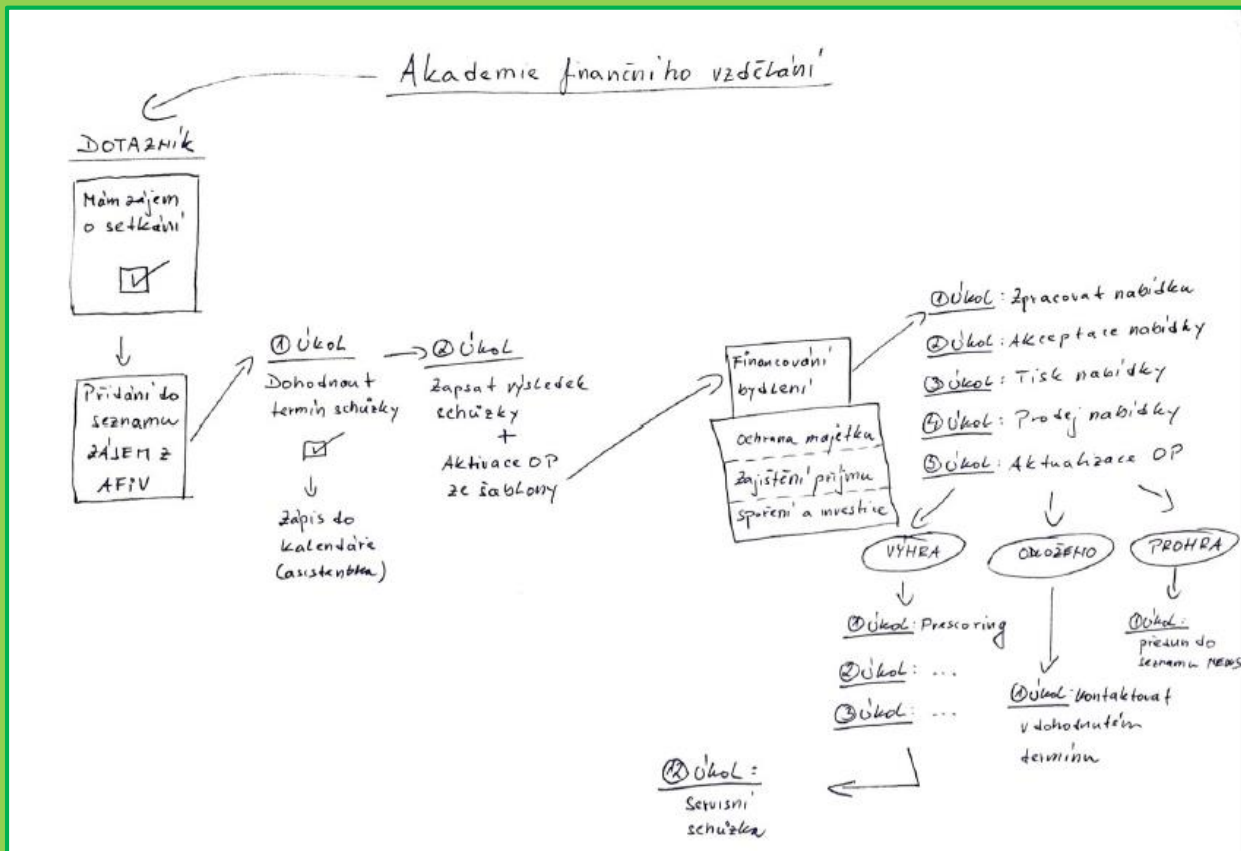 Akademie finančního vzdělání
DOTAZNÍK
Mám zájem
o setkání
Přidání do
seznamu
ZÁJEM Z
AFIV
① Úkol
Dohodnout
termín schůzky
Zápis do
kalendáře
(asistentka)
② Úkol
Zapsat výsledek
schůzky
+
Aktivace OP
ze šablony
Financování
bydlení
Ochrana majetku
Zajištění příjmu
Spoření a investice
① Úkol: Zpracovat nabídku
② Úkol: Akceptace nabídky
③ Úkol: Tisk nabídky
④ Úkol: Prodej nabídky
⑤ Úkol: Aktualizace OP
VÝHRA
ODLOŽENO
PROHRA
① Úkol: Prescoring
② Úkol: ...
③ Úkol: ...
⑫ Úkol:
Servisní
schůzka
① Úkol: Kontaktovat
v dohodnutém
termínu
① Úkol:
přesun do
seznamu NEWS